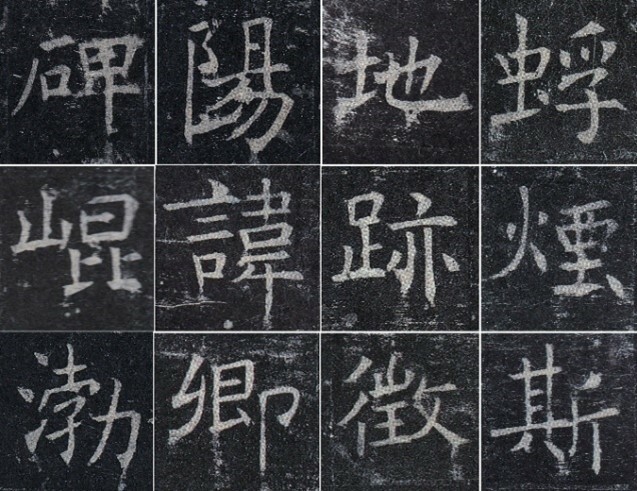 碑陽地蜉
崐諱跡煙
渤卿徵斯